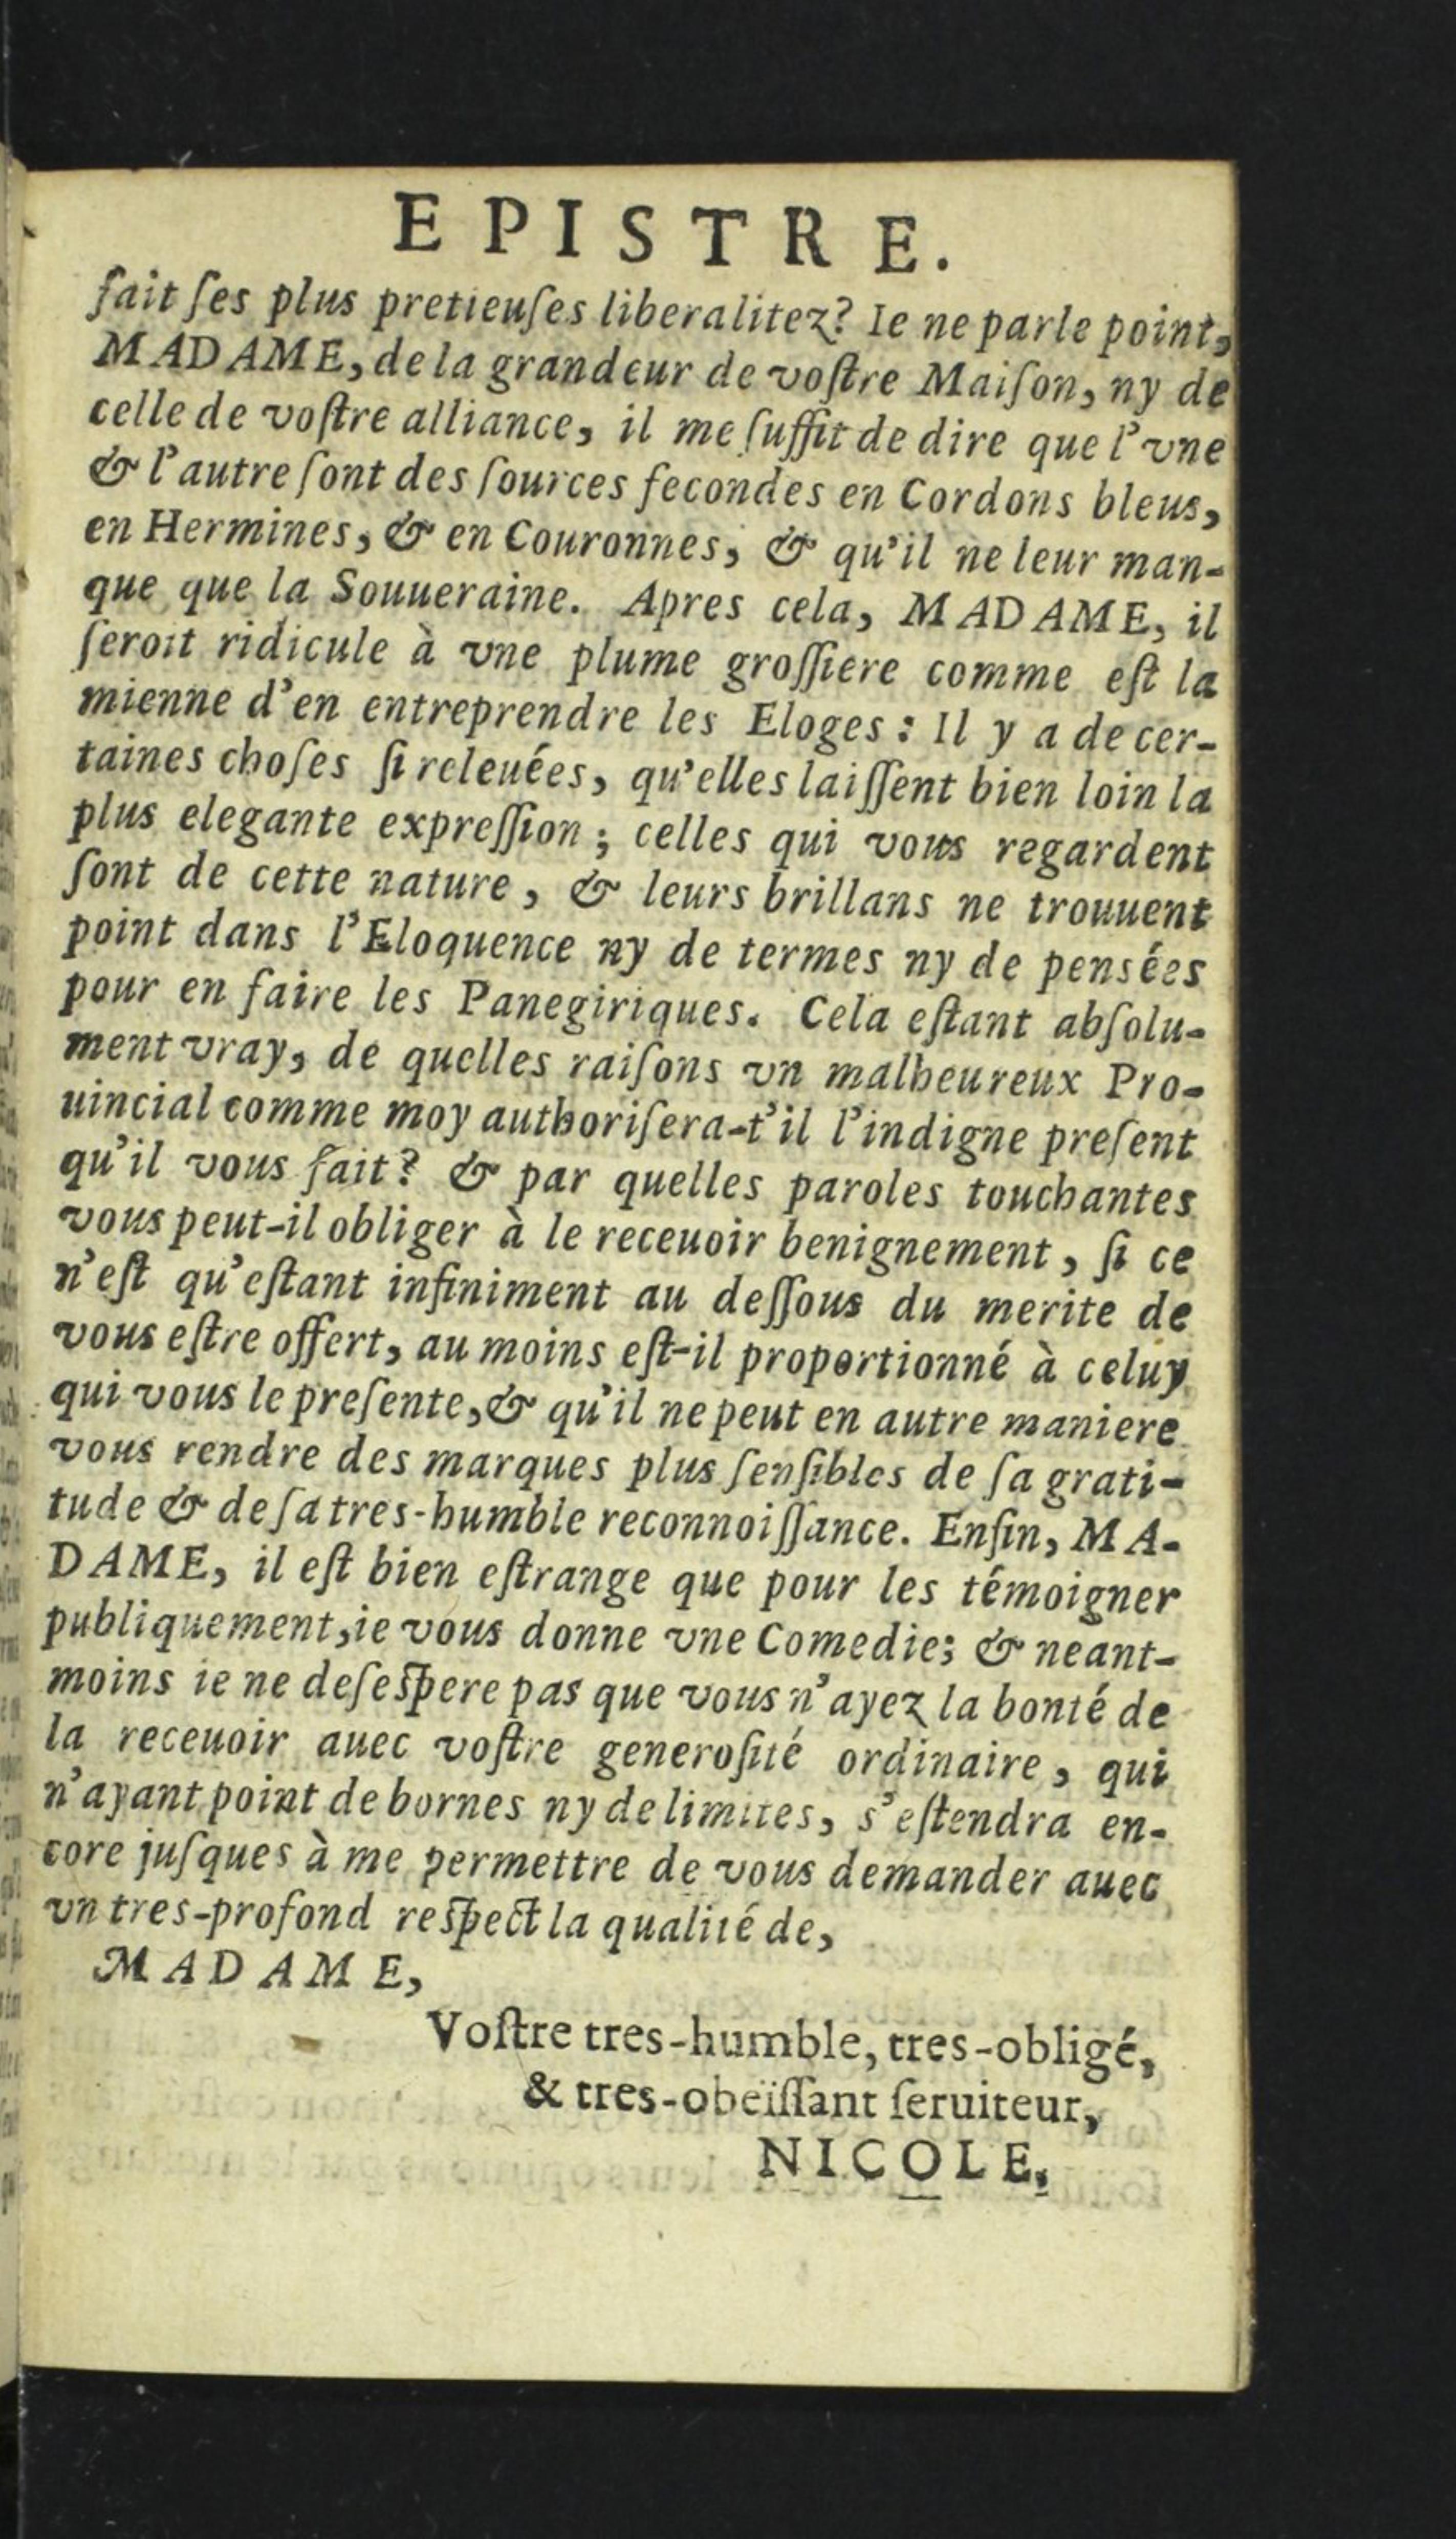 EPISTRE.
fait ſes plus pretieuſes liberalitez? Ie ne parle point,
MADAME, de la grandeur de voſtre Maiſon, ny de
celle de voſtre alliance, il me ſuffit de dire que l'vne
& l'autre ſont des ſources fecondes en Cordons bleus,
en Hermines, & en Couronnes, & qu'il ne leur man-
que que la Souueraine. Apres cela, MADAME, il
ſeroit ridicule à vne plume groſſiere comme eſt la
mienne d'en entreprendre les Eloges : Il y a de cer-
taines choſes ſi releuées, qu'elles laiſſent bien loin la
plus elegante expreſſion ; celles qui vous regardent
ſont de cette nature, & leurs brillans ne trouuent
point dans l'Eloquence ny de termes ny de pensées
pour en faire les Panegiriques. Cela eſtant abſolu-
ment vray, de quelles raiſons vn malheureux Pro-
uincial comme moy authoriſera-t'il l'indigne preſent
qu'il vous fait? & par quelles paroles touchantes
vous peut-il obliger à le receuoir benignement, ſi ce
n'eſt qu'eſtant infiniment au deſſous du merite de
vous eſtre offert, au moins eſt-il proportionné à celuy
qui vous le preſente, & qu'il ne peut en autre maniere
vous rendre des marques plus ſenſibles de ſa grati-
tude & de ſa tres-humble reconnoiſſance. Enfin, MA-
DAME, il eſt bien eſtrange que pour les témoigner
publiquement, ie vous donne vne Comedie; & neant-
moins ie ne deſeſpere pas que vous n'ayez la bonté de
la receuoir auec voſtre generoſité ordinaire, qui
n'ayant point de bornes ny de limites, s'eſtendra en-
core juſques à me permettre de vous demander auec
vn tres-profond reſpect la qualité de,
MADAME,
Voſtre tres-humble, tres-obligé,
& tres-obeïſſant ſeruiteur,
NICOLE.